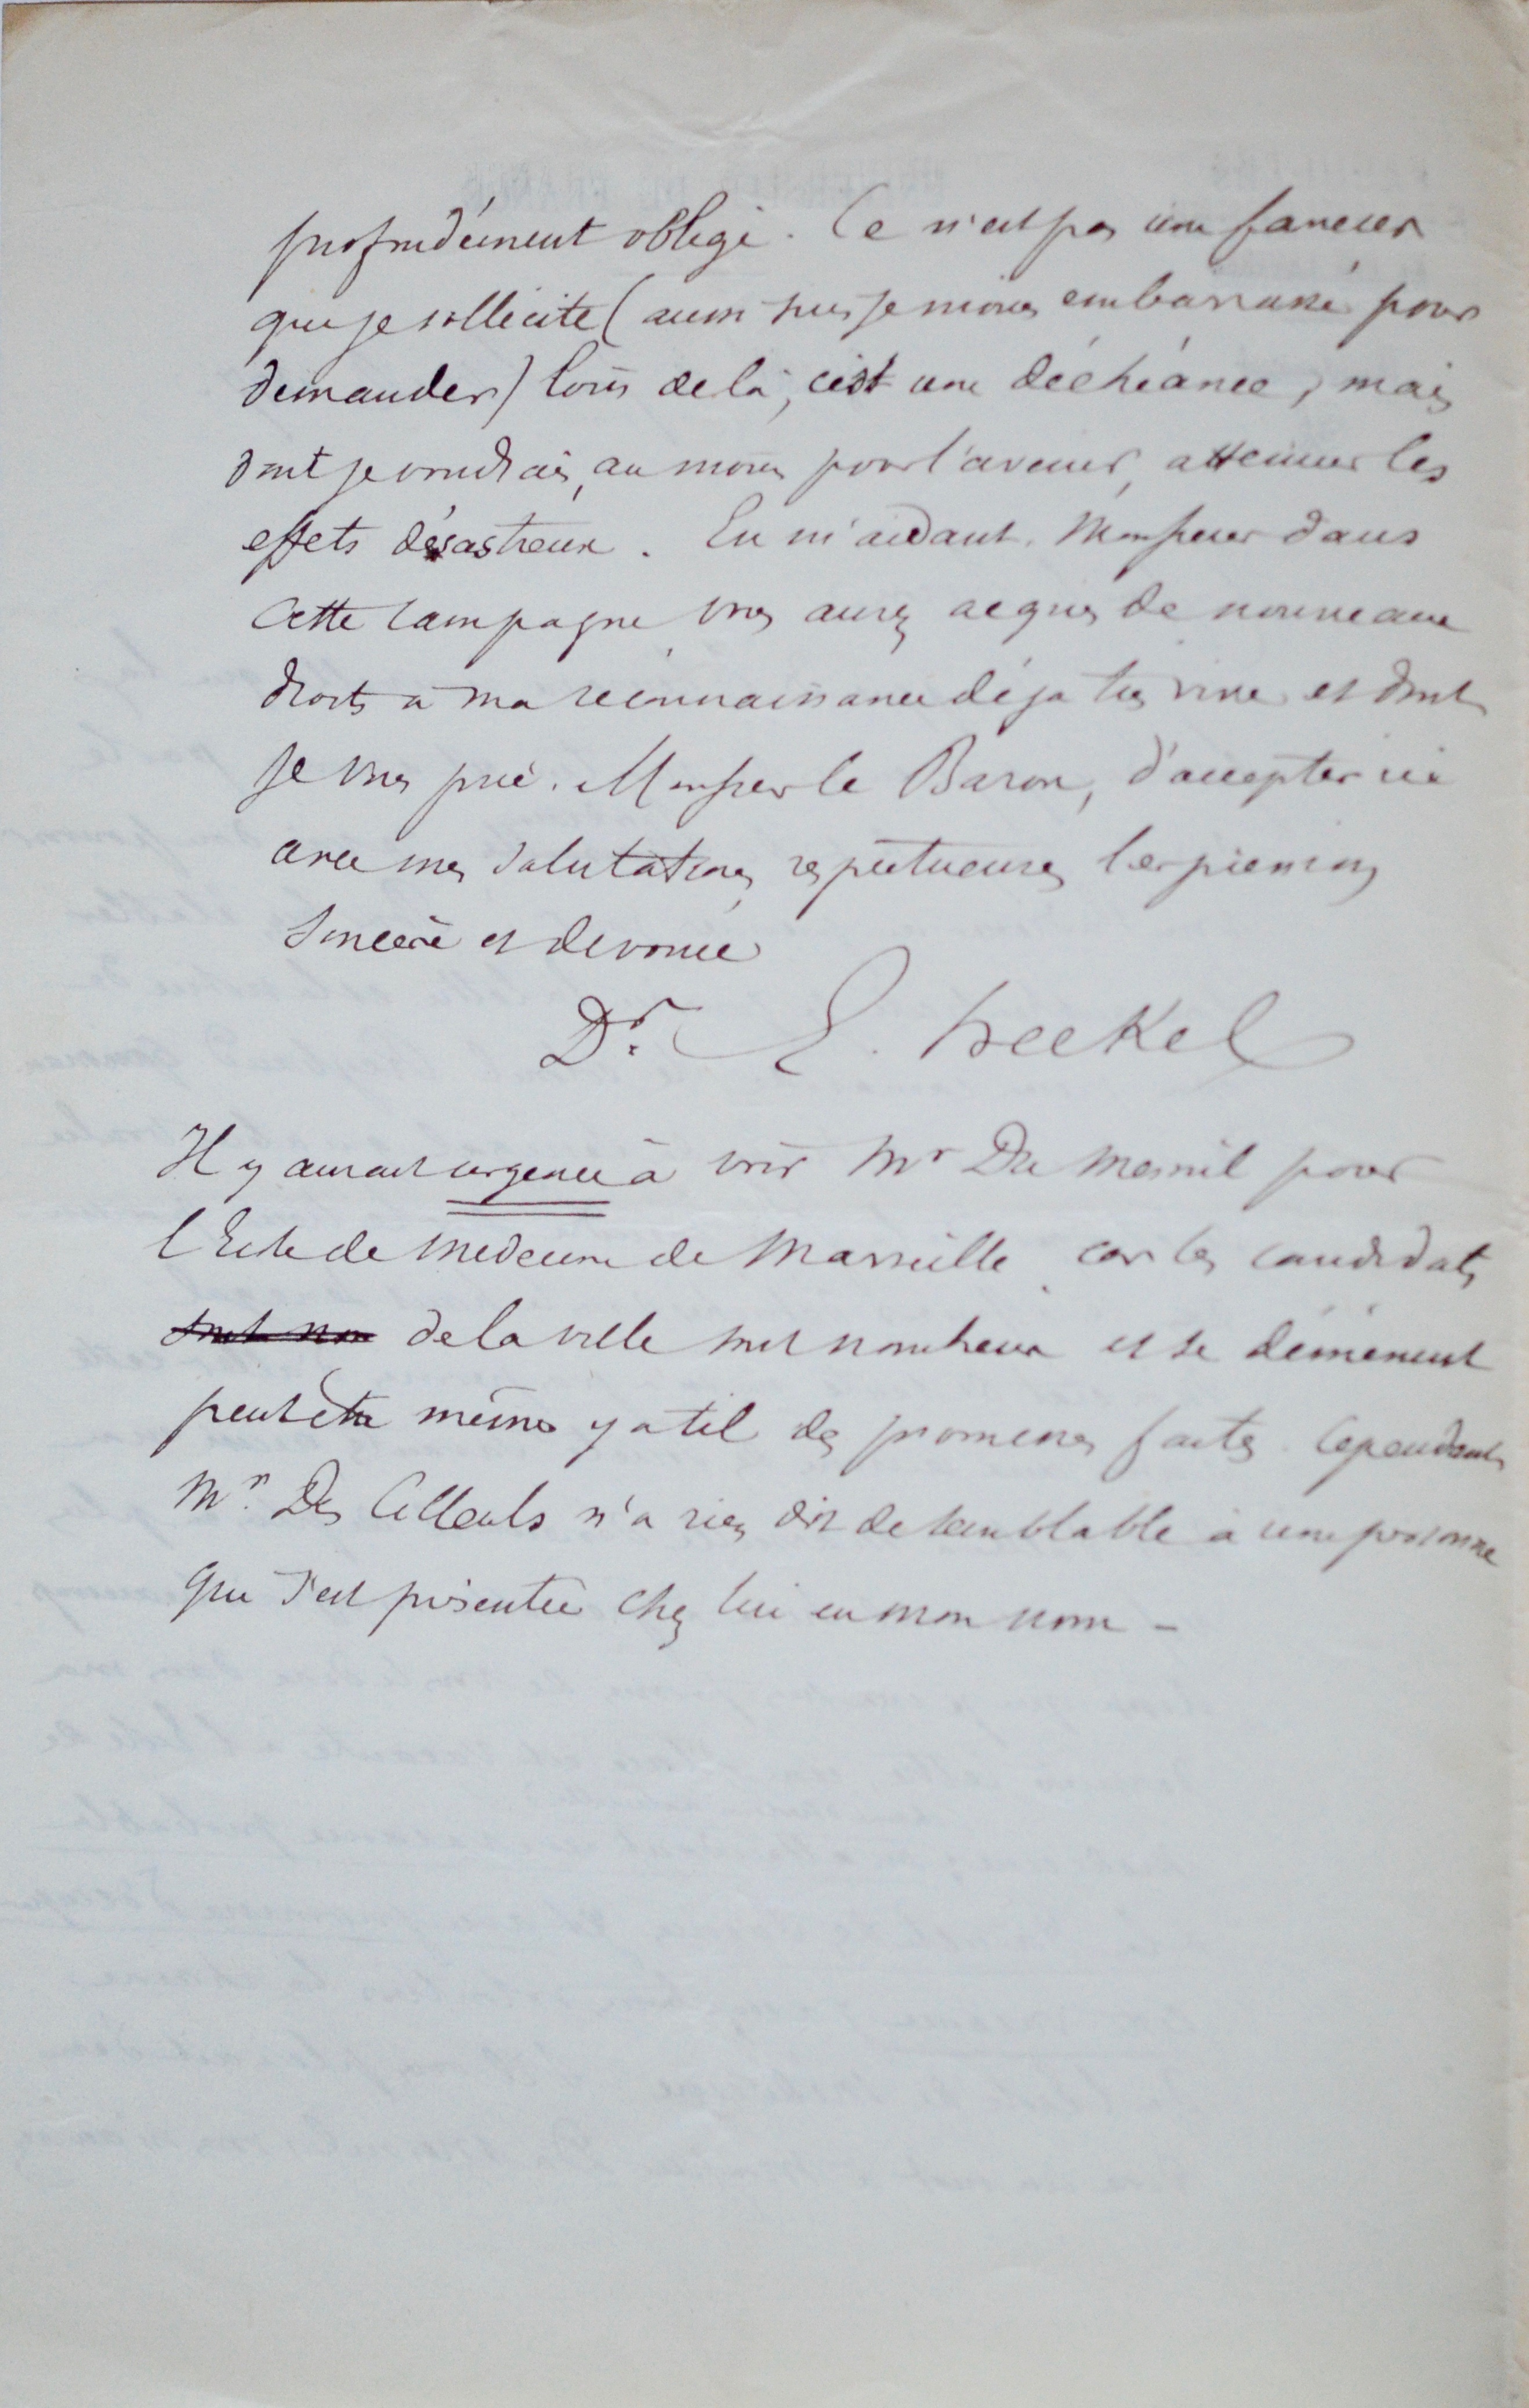 profondément obligé. Ce n'est pas une faveur
que je sollicite (aussi suis je moins embarrassé pour
demander) loin de là, c'est une déchéance, mais
dont je voudrais, au moins pour l'avenir, atténuer les
effets désastreux. En m'aidant, Monsieur dans
cette campagne, vous aurez acquis de nouveaux
droits à ma reconnaissance déjà très vive et dont
je vous prie, Monsieur le Baron, d'accepter ici
avec mes salutations respectueuses, l'expression
sincère et dévouée
Dr. E. Heckel
Il y aurait urgence à voir Mr Du Mesnil pour
l'Ecole de médecine de Marseille car les candidats
sont nom de la ville sont nombreux et se démènent
peut être même y a t il des promesses faites. Cependant
Mr. Des Cilleuls n'a rien dit de semblable à une personne
qui s'est présentée chez lui en mon nom -